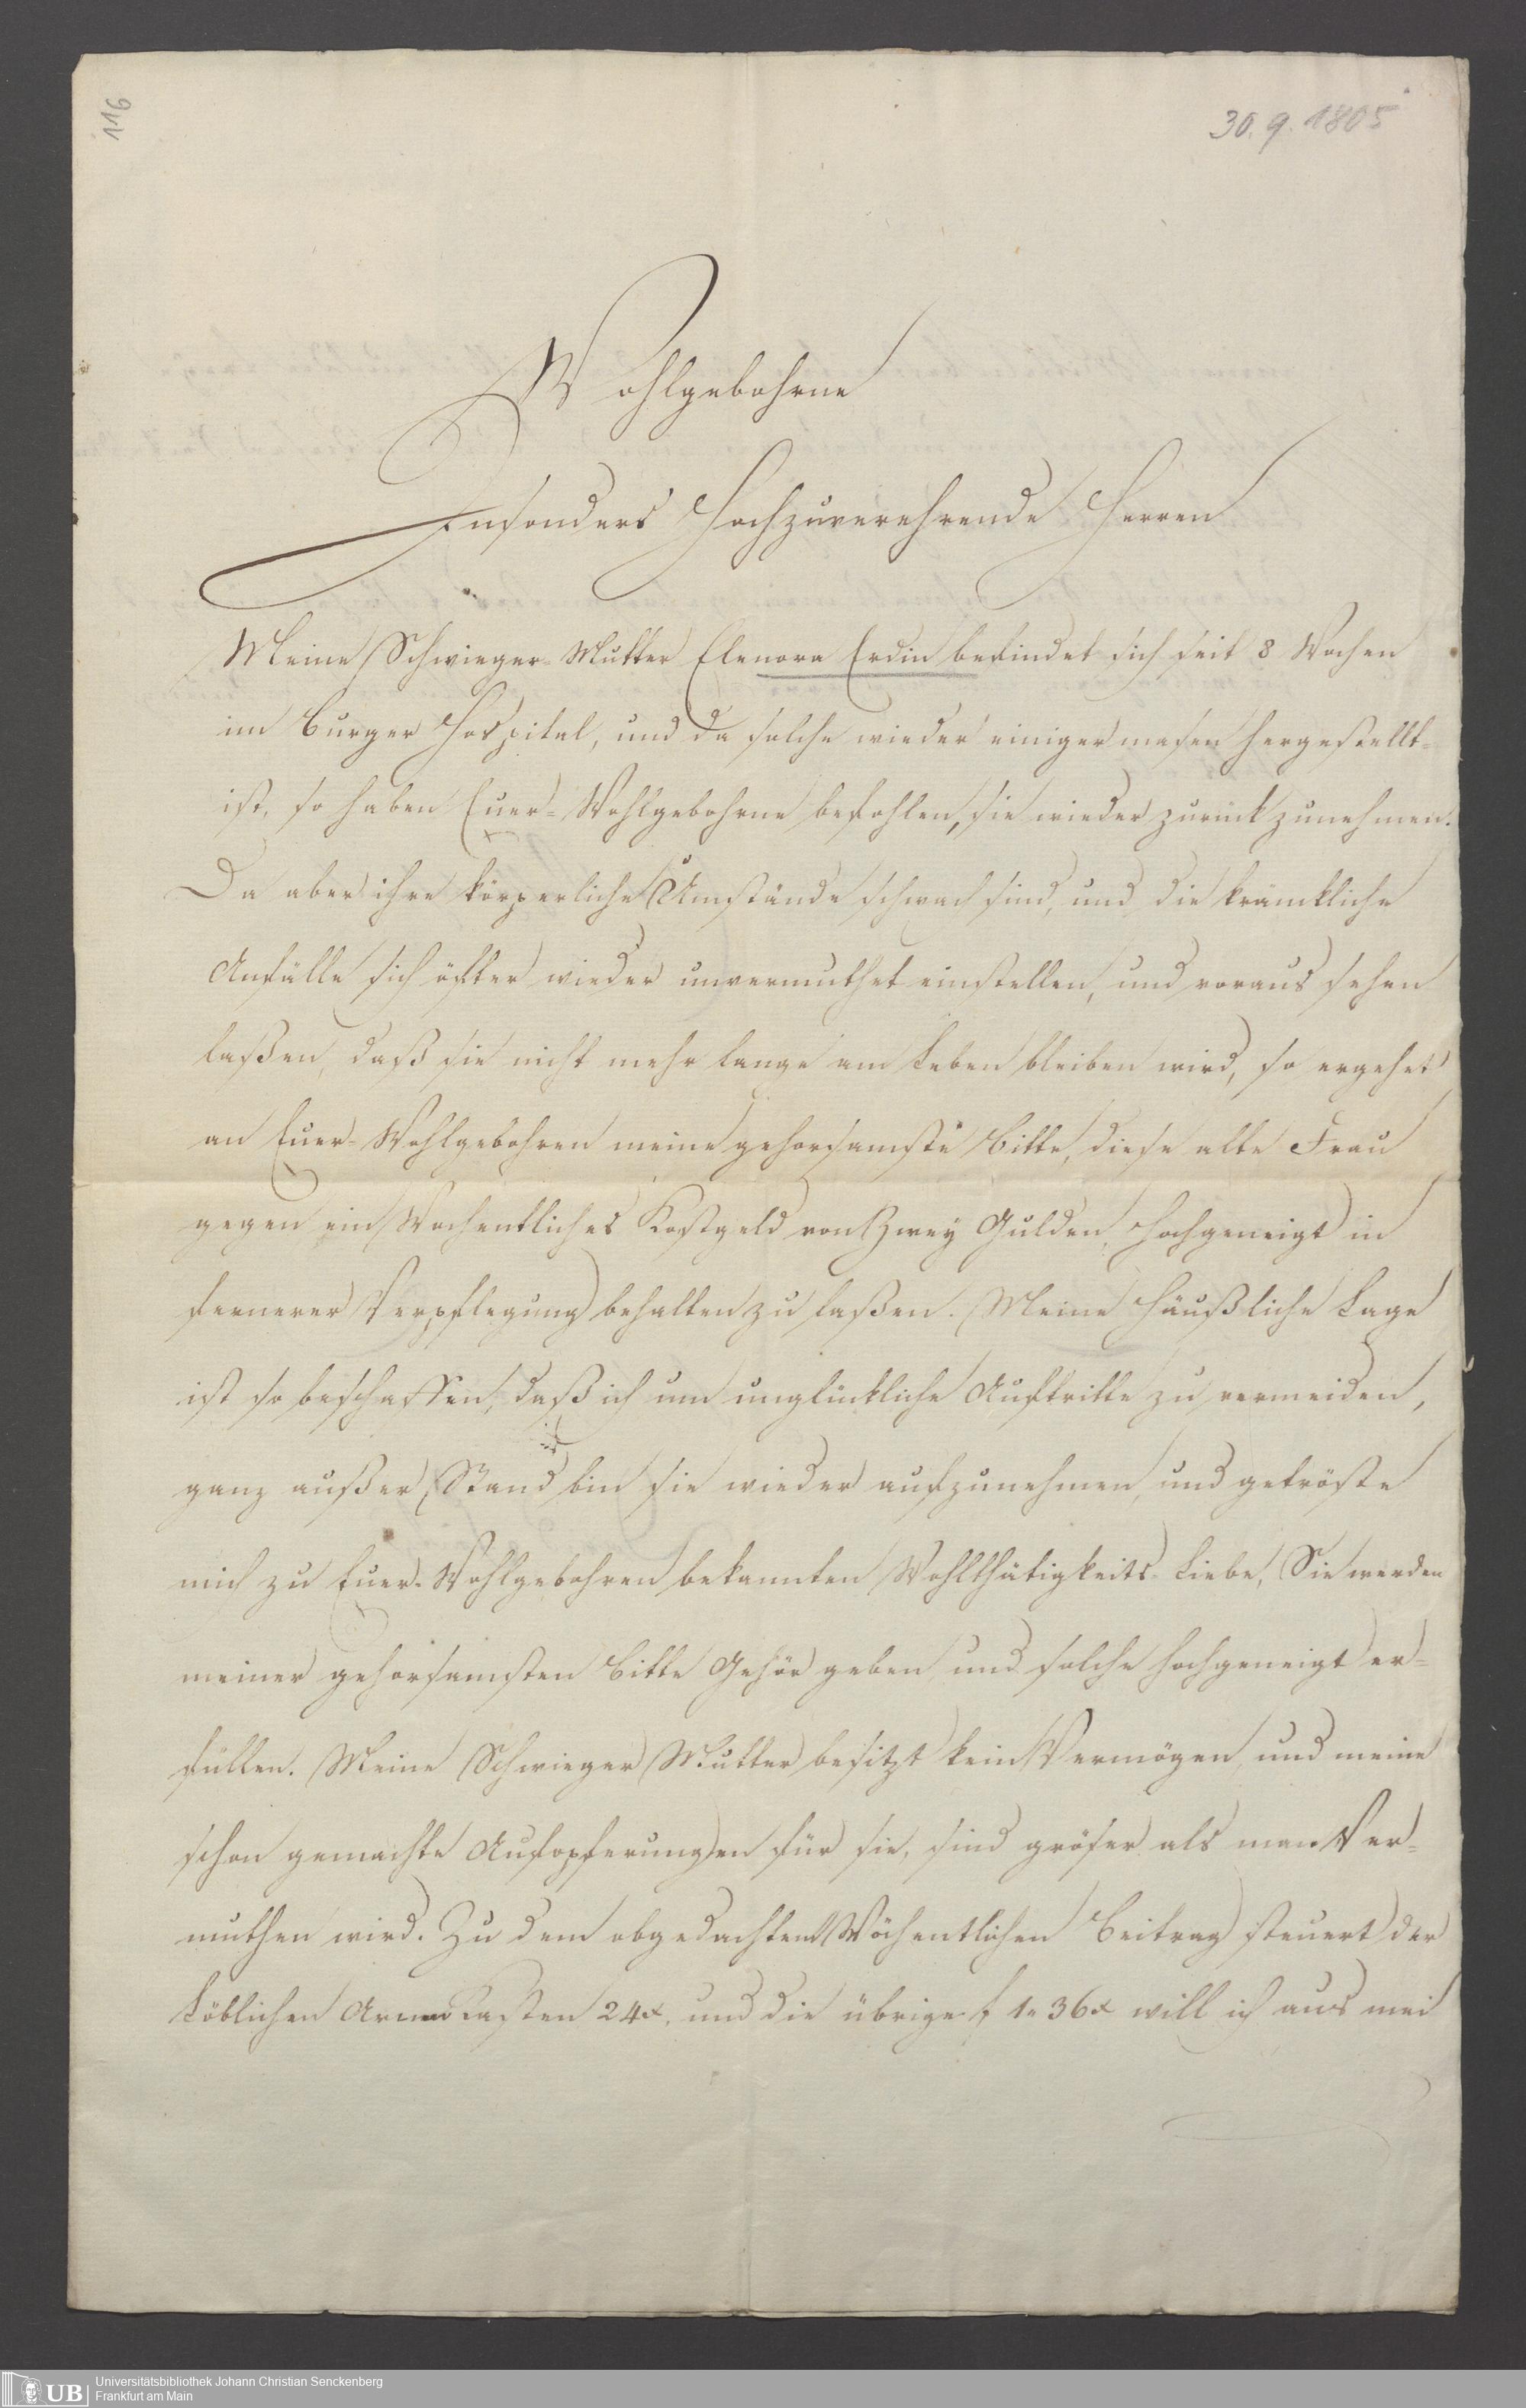 116
30. 9. 1805
Wohlgebohrne
Insonders Hochzuverehrende Herren
Meine Schwieger-Mutter Elenora Erdin befindet sich seit 8 Wochen
im Burger Hospital, und da solche wieder einiger masen hergestellt
ist, so haben Euer-Wohlgebohrne befohlen, sie wieder zurück zunehmen.
Da aber ihre körperliche Umstände schwach sind, und die kränckliche
Anfälle sich öfter wieder unvermuthet einstellen, und voraus sehen
laßen, daß sie nicht mehr lange am Leben bleiben wird, so ergehet
an Euer-Wohlgebohren meine gehorsamste Bitte, diese alte Frau
gegen ein Wochentliches Kostgeld von Zwey Gulden, Hochgeneigt in
fernerer Verpflegung behalten zu laßen. Meine häußliche Lage
ist so beschaffen, daß ich um unglückliche Auftritte zu vermeiden,
ganz außer Stand bin sie wieder aufzunehmen, und getröste
mich zu Euer-Wohlgebohren bekannten Wohlthätigkeits-Liebe, Sie werden
meiner gehorsamsten Bitte Gehör geben, und solche hochgeneigt er-
füllen. Meine Schwieger Mutter besitzt kein Vermögen, und meine
schon gemachte Aufopferungen für sie, sind gröser als man Ver-
muthen wird. Zu dem obgedachten Wöchentlichen Beitrag steuert der
Löblichen Armen Kasten 24x. und die übrige f 1„36x will ich aus mei
UB
Universitätsbibliothek Johann Christian Senckenberg
Frankfurt am Main